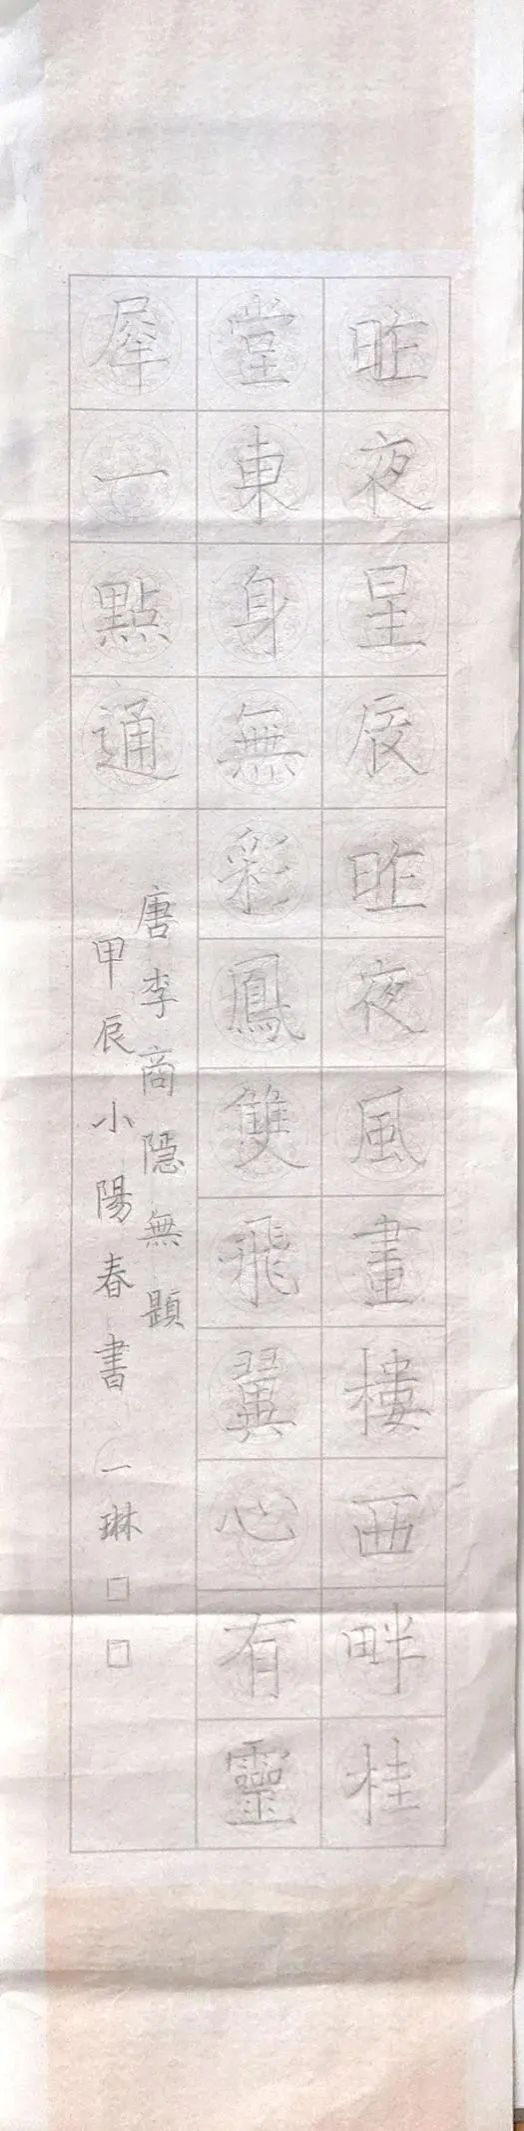 昨夜星辰昨夜風畫樓西畔桂
堂東身無彩鳳雙飛翼心有靈
犀一點通
唐李商隱無題
甲辰小陽春書一琳□□